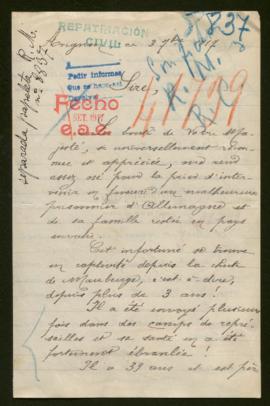 REPATRIACIÓN
CIVIL
837
Avignon, ce 3 7bre 1917
Pedir informes
Fecho
SET. 1917
Sire,
41799
separada papeleta R. M.
La bonté de Votre Majesté, si universellement
et appréciée, me rend
assez osé pour la prier d'intervenir
en faveur d'un malheureux
prisonnier d'Allemagne et
de sa famille restée en pays
envahi.
Cet infortuné se trouve
en captivité depuis la chute
de Maubeuge, c'est-à-dire,
depuis plus de 3 ans!
Il a été envoyé plusieurs
fois dans des camps de représailles
et sa santé en a été
fortement ébranlée!
Il a 39 ans et est père